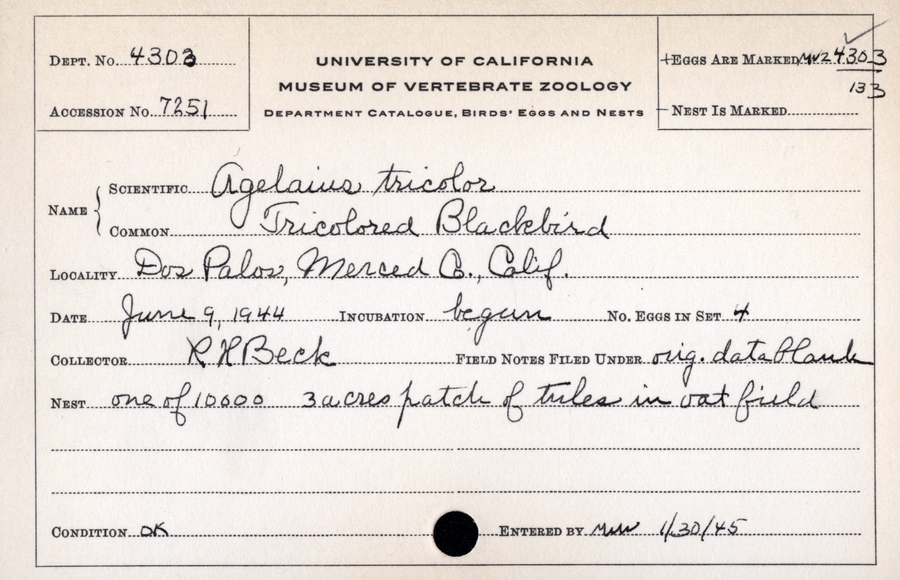 Dept. No. 4303
Accession No. 7251
UNIVERSITY OF CALIFORNIA
MUSEUM OF VERTEBRATE ZOOLOGY
Department Catalogue, Birds' Eggs and Nests
Eggs Are Marked MVZ 4303
133
Nest Is Marked
Name
Scientific Agelaius tricolor
Common Tricolored Blackbird
Locality Dos Palos, Merced Co., Calif.
Date June 9, 1944 Incubation begun No. Eggs in Set 4
Collector R H Beck Field Notes Filed Under orig. data blank
Nest one of 10000 3 acres patch of tules in oat field
Condition OK Entered by 1/30/45